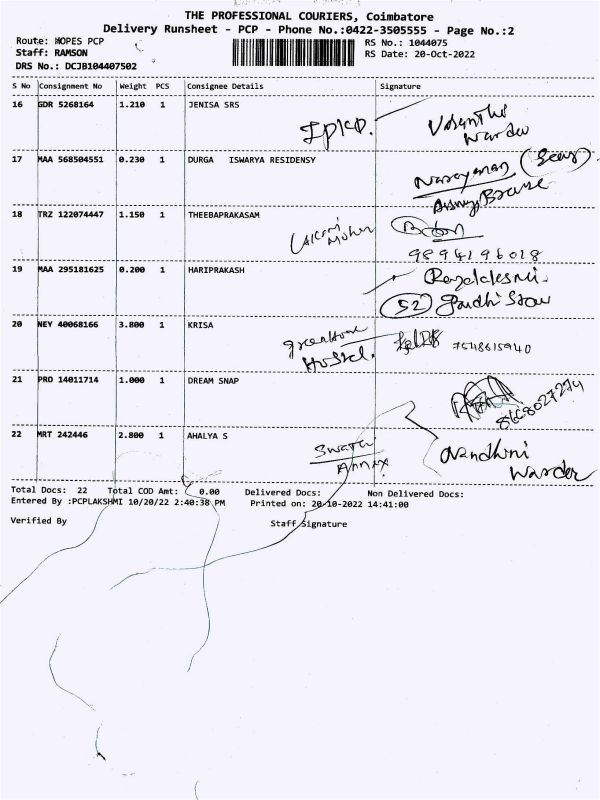 THE PROFESSIONAL COURIERS, Coimbatore
Delivery Runsheet - PCP - Phone No.:0422-3505555 - Page No.:2
Route: HOPES PCP
RS No.: 1044075
Staff: RAMSON
RS Date: 20-Oct-2022
DRS No.: DCJB104407502
S No Consignment No Weight PCS Consignee Details Signature
16 GDR 5268164 1.210 1 JENISA SRS
Vasantha
warden
17 MAA 568504551 0.230 1 DURGA ISWARYA RESIDENSY
Narayanan
18 TRZ 122074447 1.150 1 THEEBAPRAKASAM
9894196018
19 MAA 295181625 0.200 1 HARIPRAKASH
52
20 NEY 40068166 3.800 1 KRISA
Hostel.
7548615940
21 PRO 14011714 1.000 1 DREAM SNAP
8668027274
22 MRT 242446 2.800 1 AHALYA S
Annex
Nandhini
Warden
Total Docs: 22 Total COD Amt: 0.00 Delivered Docs: Non Delivered Docs:
Entered By :PCPLAKSHMI 10/20/22 2:40:38 PM Printed on: 20-10-2022 14:41:00
Verified By Staff Signature